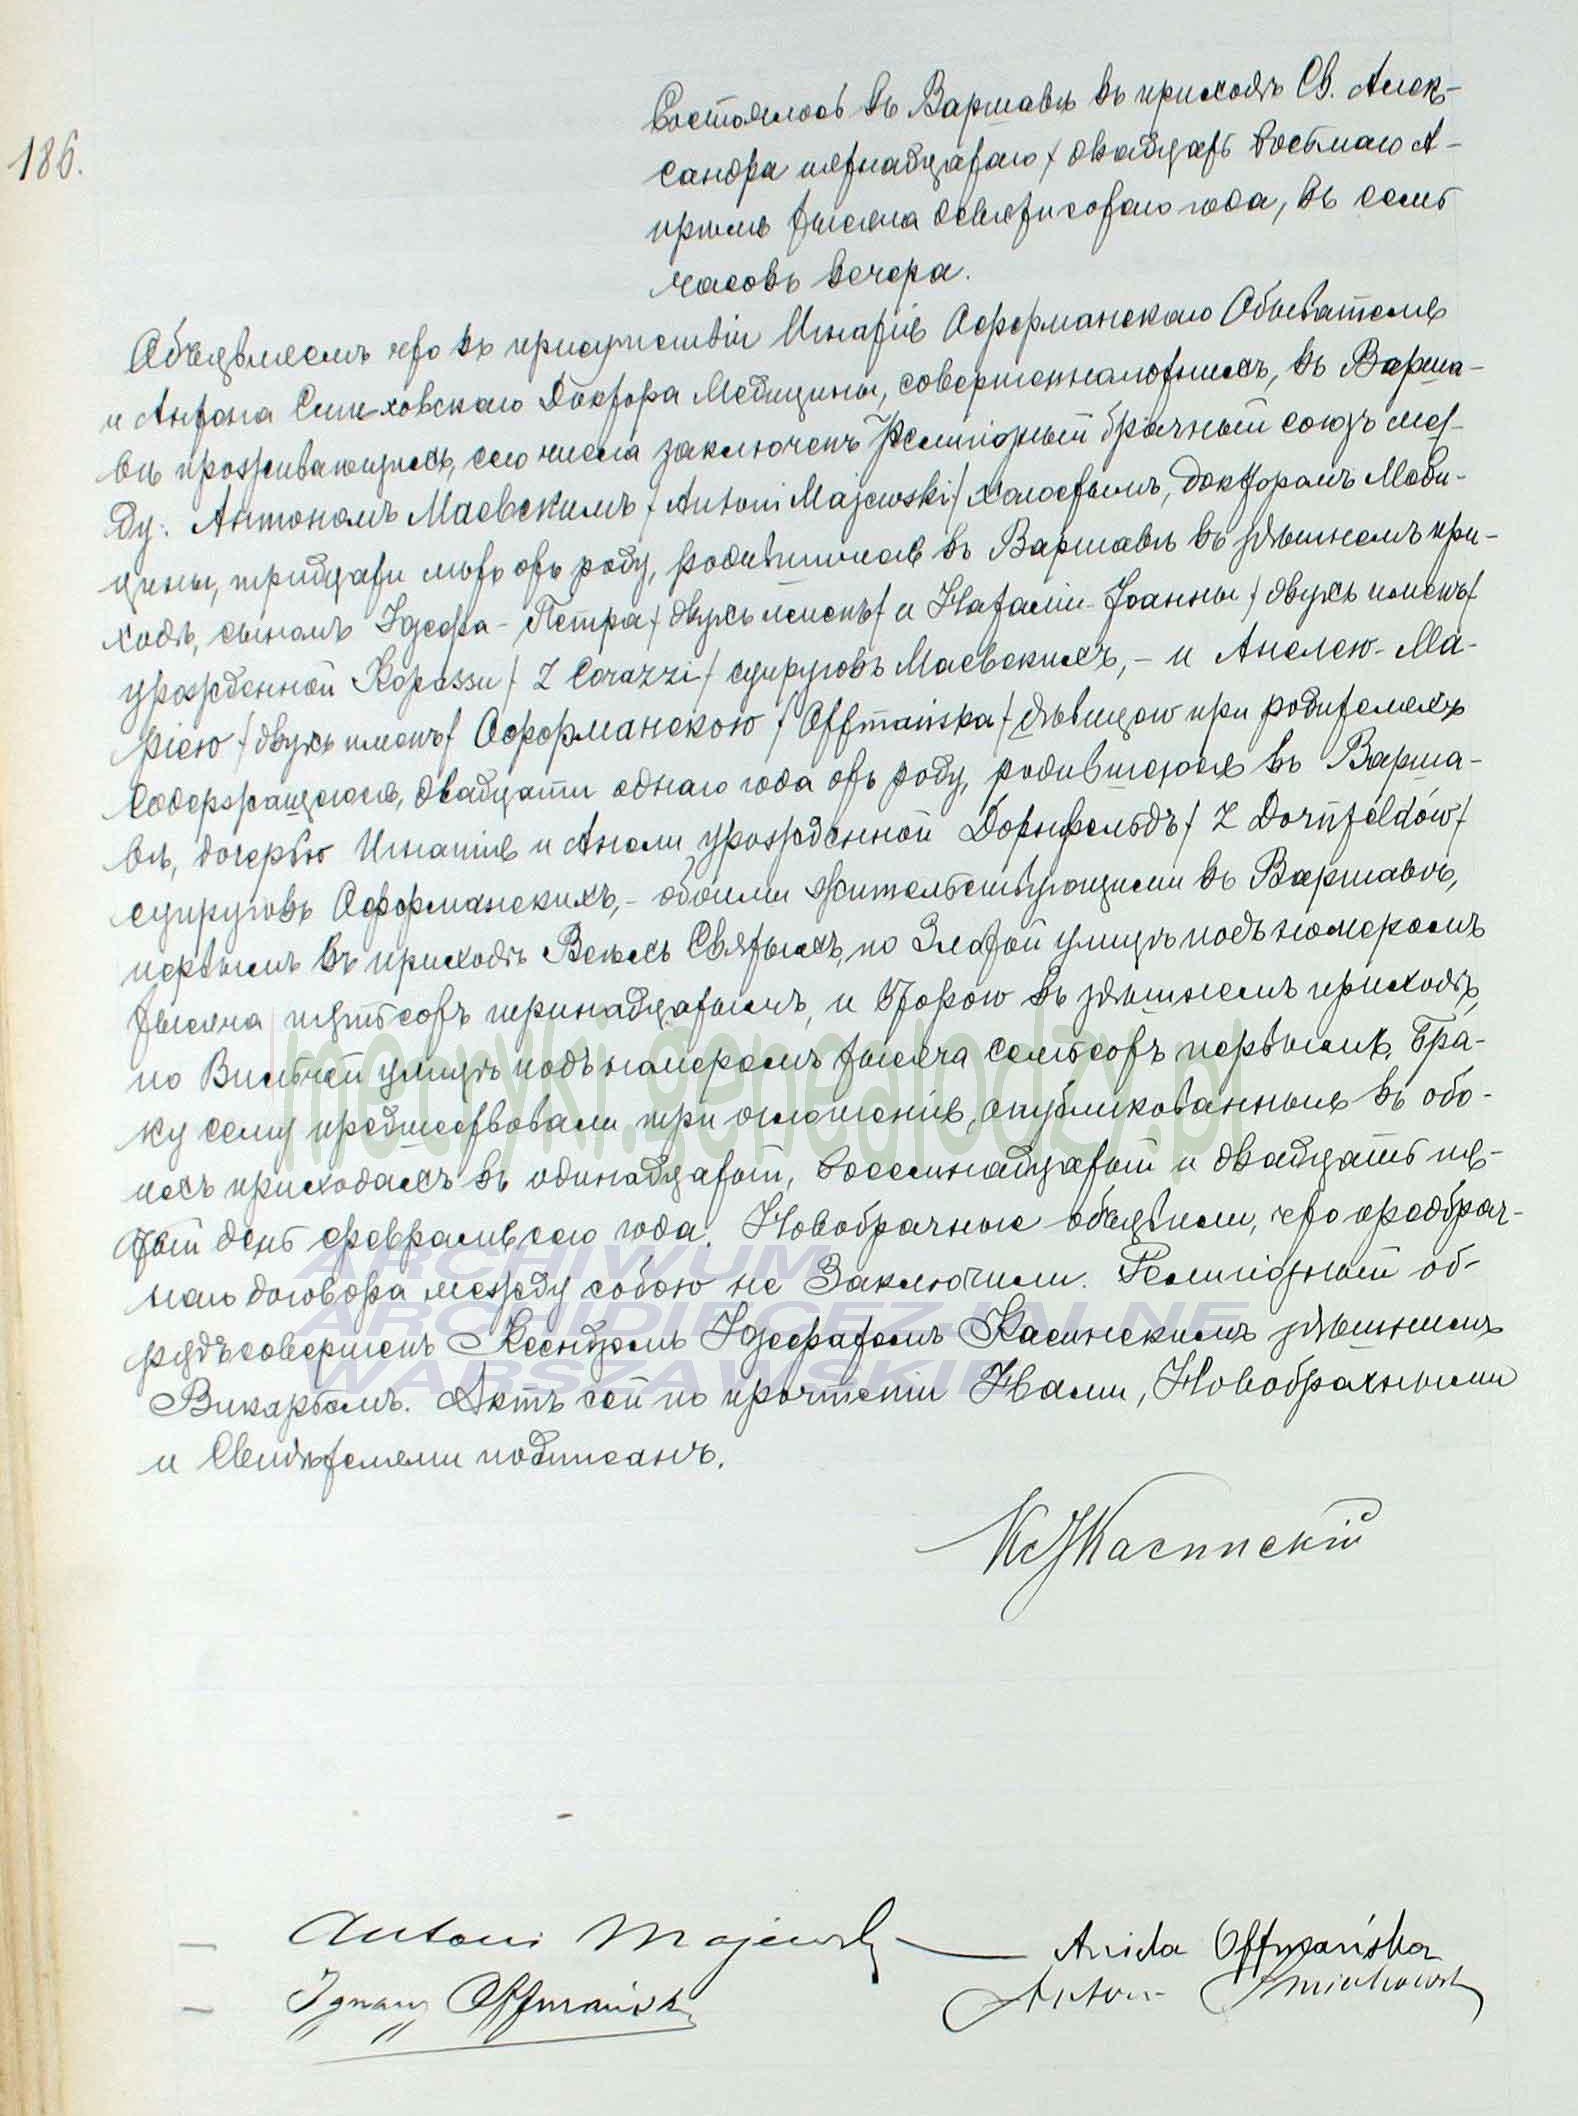 186.
Состоялось въ Варшавѣ въ приходѣ Св. Алек-
сандра пятнадцатаго / двадцать восьмаго А-
прѣля тысяча девятисотаго года, въ семь
часовъ вечера.
Объявляемъ что въ присутствіи Игнатія Офформанскаго Обывателя
и Антона Смѣховскаго Доктора Медицины, совершеннолѣтнихъ, въ Варша-
вѣ проживающихъ, сего числа заключенъ Религіозный брачный союзъ меж-
ду: Антономъ Маевскимъ / Antoni Majewski / холостымъ, Докторомъ Меди-
цины, тридцати лѣтъ отъ роду, родившимся въ Варшавѣ въ здѣшнемъ при-
ходѣ, сыномъ Іосифа-Петра / двухъ именъ / и Наталіи-Іоанны / двухъ именъ /
урожденной Корассы / z Corazzi / супруговъ Маевскихъ, - и Анелею-Ма-
ріею / двухъ именъ / Офформанскою / Offmańska / дѣвицею при родителяхъ
содержащеюся, двадцати одного года отъ роду, родившеюся въ Варша-
вѣ, дочерью Игнатія и Анели урожденной Дорнфельдъ / z Dornfeldów /
супруговъ Офформанскихъ, - обоими жительствующими въ Варшавѣ,
первымъ въ приходѣ Всѣхъ Святыхъ, по Златой улицѣ подъ номеромъ
тысяча пятьсотъ тринадцатымъ, и второю въ здѣшнемъ приходѣ,
по Вильчей улицѣ подъ номеромъ тысяча семьсотъ первымъ. Бра-
ку сему предшествовали три оглашенія, опубликованныя въ обо-
ихъ приходахъ въ одинадцатый, восемнадцатый и двадцать пя-
тый день февраля сего года. Новобрачные объявили, что предбрач-
наго договора между собою не заключили. Религіозный об-
рядъ совершенъ Ксендзомъ Іосифатомъ Касинскимъ здѣшнимъ
Викаріемъ. Актъ сей по прочтеніи Нами, Новобрачными
и Свидѣтелями подписанъ.
Кс І Касинскій
Antoni Majewski Aniela Offmańska
Ignacy Offmański Antoni Śmiechowski
metryki.genealodzy.pl
ARCHIWUM
ARCHIDIECEZJALNE
WARSZAWSKIE